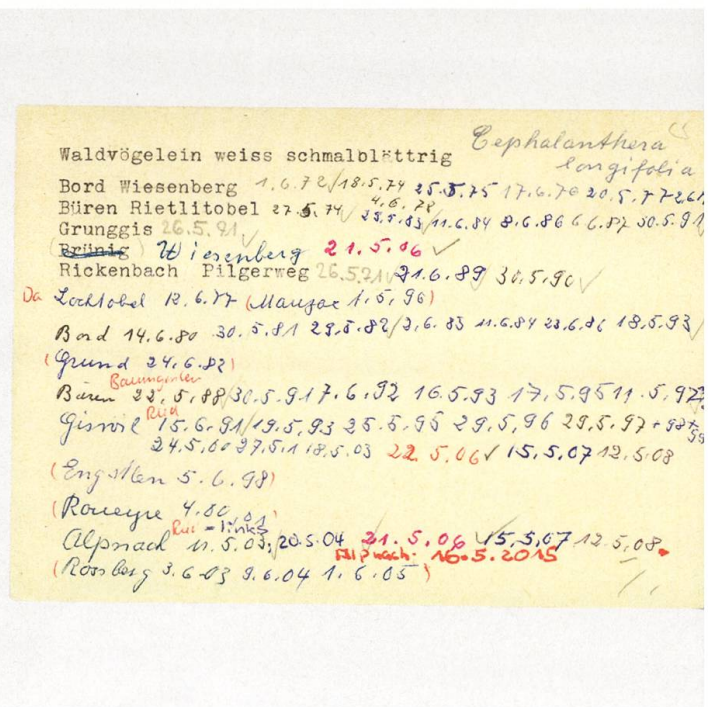 Cephalanthera
longifolia
Waldvögelein weiss schmalblättrig
Bord Wiesenberg 1.6.72/18.5.74 25.5.75 17.6.76 20.5.77
4.6.78
Büren Rietlitobel 27.5.74 25.5.83/11.6.84 8.6.86 6.6.87 30.5.91
Grunggis 26.5.91
(Brünig) Wiesenberg 21.5.06
Rickenbach Pilgerweg 26.5.71 21.6.89 30.5.90
Da Lochtobel 12.6.77 (1.5.96)
Bord 14.6.80 30.5.81 29.5.82/2.6.83 11.6.84 23.6.86 18.5.93
(Grund 24.6.82)
Baumgarten
Büren 22.5.88/30.5.91 7.6.92 16.5.93 17.5.95 11.5.97
Ried
Giswil 15.6.91/19.5.93 25.5.95 29.5.96 29.5.97 + 98 +
99
24.5.00 27.5.1 18.5.03 22.5.06 15.5.07 12.5.08
(Engstlen 5.6.98)
(4.00, 01)
- links
Alpnach 11.5.03, 20.5.04 21.5.06 15.5.07 12.5.08.
Alpnach. 16.5.2015
(Rossberg 3.6.03 9.6.04 1.6.05)